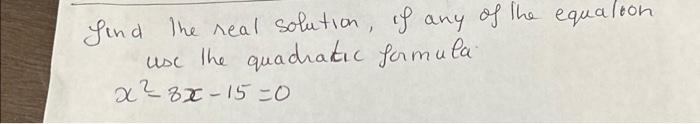 find the real solution, if any of the equation
use the quadratic formula
x² - 8x - 15 = 0